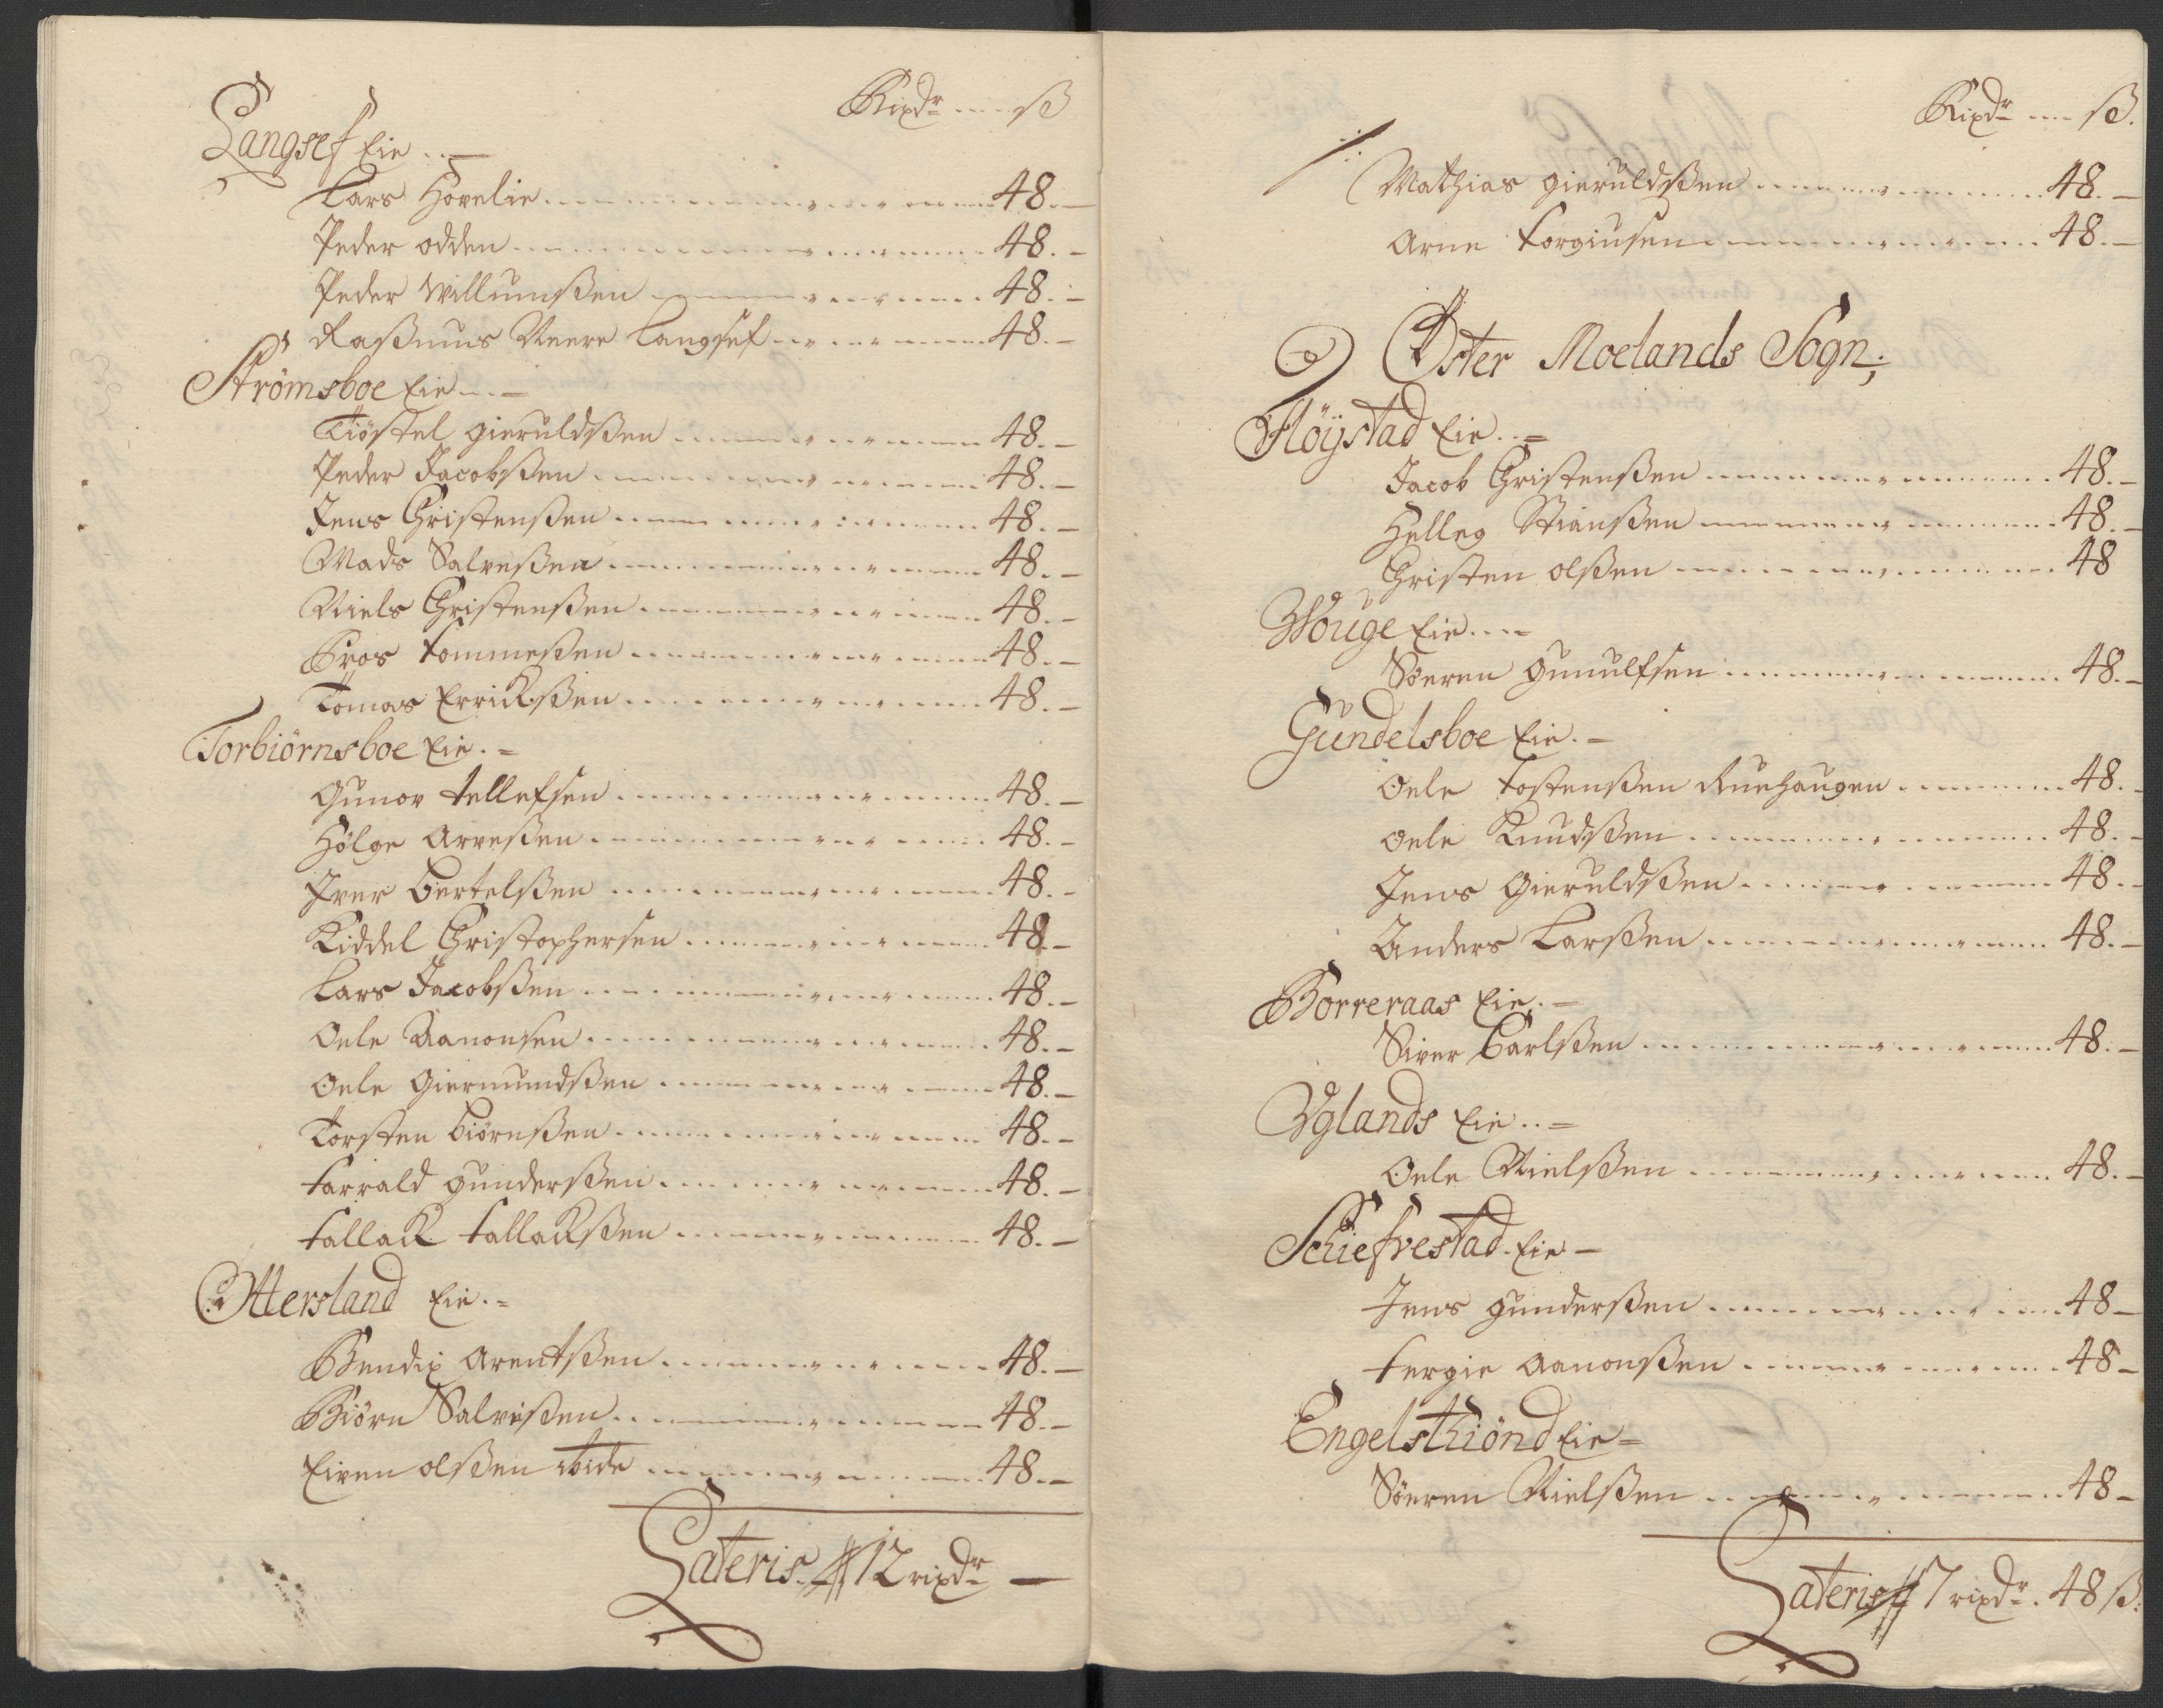 Rixdr ---- ß
Langsef Eie . . —
Lars Hovelie ........ 48. —
Peder Odden ........ 48. —
Peder Willumßen ........ 48. —
Raßmus Neere Langsef ........ 48. —
Strømsboe Eie - . —
Tiøstel Gieruldßen ........ 48. —
Peder Jacobßen ........ 48. —
Jens Christenßen ........ 48. —
Mads Salveßen ........ 48. —
Niels Christenßen ........ 48. —
Gros Tommeßen ........ 48. —
Tomas Erricksßen ........ 48. —
Torbiørnsboe Eie . =
Gunov Tellefsen ........ 48. —
Hølge Arveßen ........ 48. —
Iver Bertelßen ........ 48. —
Kiddel Christophersen ........ 48 —
Lars Jacobßen ........ 48. —
Oele Aanonsen ........ 48. —
Oele Giermundßen ........ 48. —
Torsten Biørnßen ........ 48. —
Tarrald Gunderßen ........ 48. —
Tallack Tallackßen ........ 48. —
Ottersland Eie . =
Bendix Arentßen ........ 48. —
Biørn Salveßen ........ 48. —
Eiven Olßen ........ 48. —
Lateris # 12 rixdr —
Rixdr ---- ß.
Mathias Gieruldßen ........ 48. —
Arne Torgiusen ........ 48. —
Øster Moelands Sogn;
Fløÿstad Eie . . =
Jacob Christenßen ........ 48. —
Helleg Stianßen ........ 48. —
Christen Olßen ........ 48
Wouge Eie . . . =
Søeren Gunulfsen ........ 48. —
Gundelsboe Eie . —
Oele Tostenßen Ruehaugen ........ 48. —
Oele Knudßen ........ 48. —
Jens Gieruldßen ........ 48. —
Anders Larßen ........ 48. —
Borreraas Eie . —
Siver Carlßen ........ 48. —
Vglands Eie . . =
Oele Nielßen ........ 48. —
Schiefvestad Eie —
Jens Gunderßen ........ 48 —
Tergie Aanonßen ........ 48 —
Engelsthiønd Eie =
Søeren Nielßen ........ 48 —
Lateris # 7 rixdr . 48 ß.